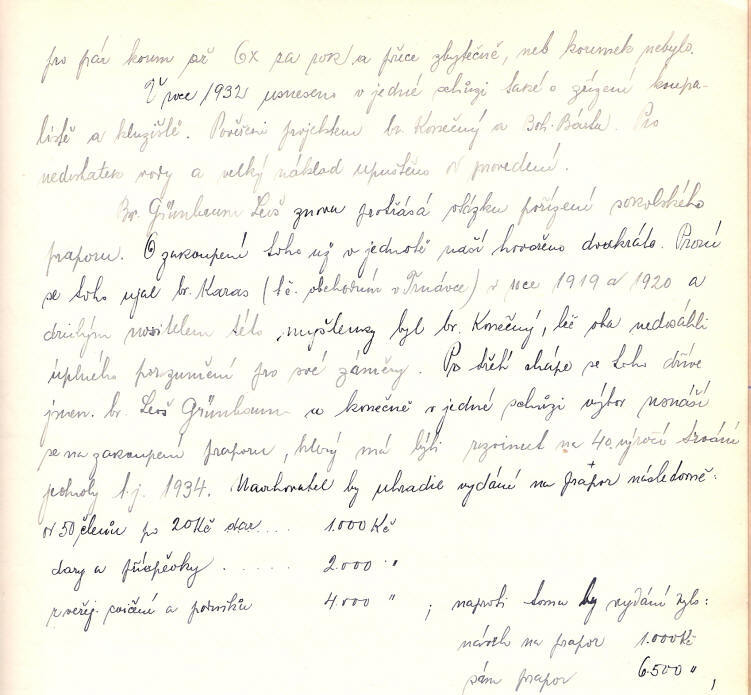 pro pár korun až 6x za rok a přece zbytečně, neb korunek nebylo.
V roce 1932 usneseno v jedné schůzi také o zřízení koupa-
liště a kluziště. Pověřeni projektem br. Konečný a Boh. Bárta. Pro
nedostatek vody a velký náklad upuštěno od provedení.
Br. Grünbaum Leoš znovu protřásá otázku pořízení sokolského
praporu. O zakoupení toho už v jednotě naší hovořeno dvakráte. První
se toho ujal br. Karas (t.č. obchodním v Trnávce) v roce 1919 a 1920 a
druhým nositelem této myšlenky byl br. Konečný, leč oba nedosáhli
úplného porozumění pro své záměry. Po třetí chápe se toho dříve
jmen. br. Leoš Grünbaum a konečně v jedné schůzi výbor usnáší
se na zakoupení praporu, který má býti rozvinut na 40. výročí trvání
jednoty t.j. 1934. Navrhovatel by uhradil vydání na prapor následovně:
od 50 členů po 20 Kč dar.... 1.000 Kč
dary a příspěvky ..... 2.000 "
z veřej. cvičení a podniků 4.000 " ; naproti tomu by vydání bylo:
návrh na prapor 1.000 Kč
sám prapor 6.500 " ,